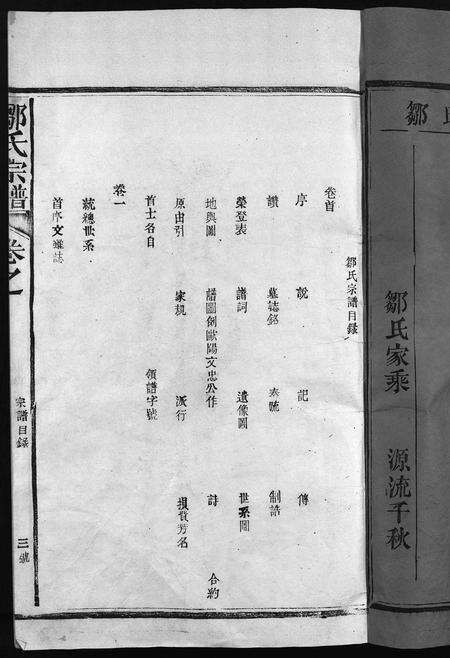 鄒氏
鄒氏家乘 源流千秋
鄒氏宗譜目錄
卷首
序 說 記 傳
讚 墓誌銘 奏疏 制誥
榮登表 諸詞 遺像圖 世系圖
地輿圖 譜圖倒歐陽文忠公作 詩 合約
原由引 家規 派行 損貲芳名
首士名目 領譜字號
卷一
統總世系
首序文雜誌
鄒氏宗譜 卷之一 宗譜目錄 三號